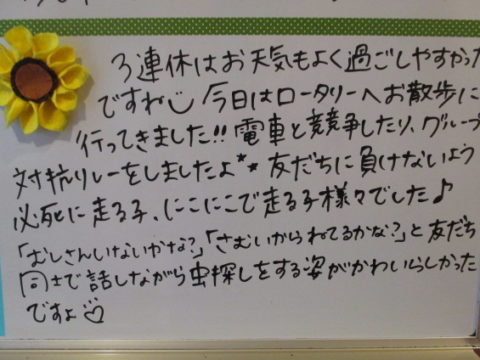 3連休はお天気もよく過ごしやすかった
ですね 今日はロータリーへお散歩に
行ってきました!!電車と競争したり、グループ
対抗リレーをしましたよ** 友だちに負けないよう
必死に走る子、にこにこで走る子様々でした♪
「むしさんいないかな?」「さむいからねてるかな?」と友だち
同士で話しながら虫探しをする姿がかわいらしかった
ですよ♡